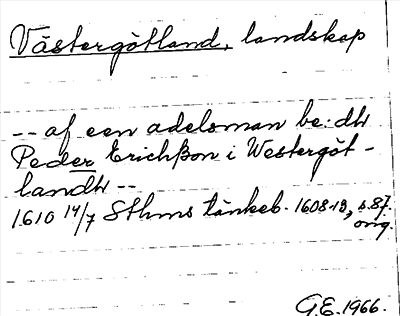 Västergötland, landskap
-- af een adelsman be:dh
Peder Erichßon i Westergöt-
landh --
1610 14/7 Sthms tänkeb. 1608-13, s.87.
orig.
G.E. 1966.